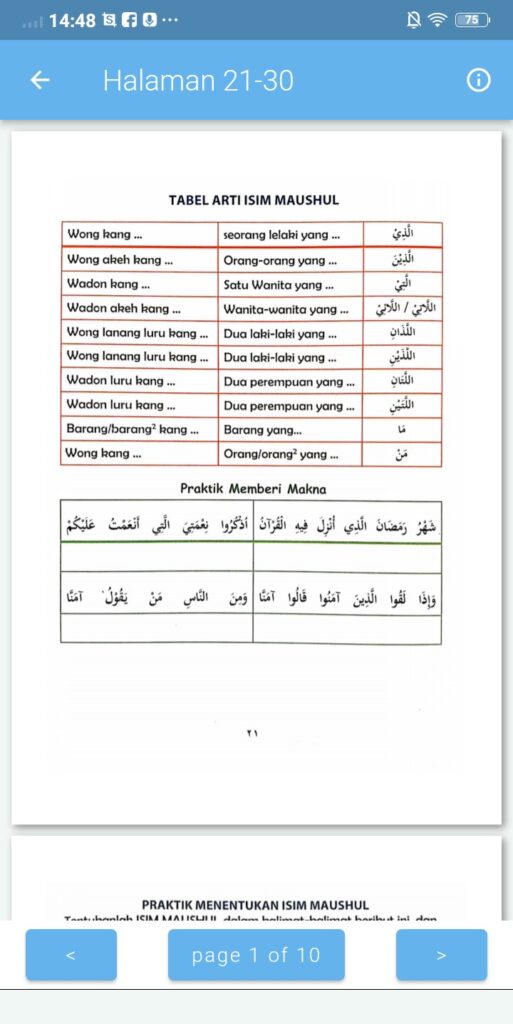 14:48 ... 75
Halaman 21-30
TABEL ARTI ISIM MAUSHUL
Wong kang ... seorang lelaki yang ... الَّذِيْ
Wong akeh kang ... Orang-orang yang ... الَّذِيْنَ
Wadon kang ... Satu Wanita yang ... الَّتِيْ
Wadon akeh kang ... Wanita-wanita yang ... اللَّاتِيْ / اللَّائِيْ
Wong lanang luru kang ... Dua laki-laki yang ... اللَّذَانِ
Wong lanang luru kang ... Dua laki-laki yang ... اللَّذَيْنِ
Wadon luru kang ... Dua perempuan yang ... اللَّتَانِ
Wadon luru kang ... Dua perempuan yang ... اللَّتَيْنِ
Barang/barang² kang ... Barang yang... مَا
Wong kang ... Orang/orang² yang ... مَنْ
Praktik Memberi Makna
شَهْرُ رَمَضَانَ الَّذِي أُنْزِلَ فِيهِ الْقُرْآنُ أُذْكُرُوا نِعْمَتِيَ الَّتِي أَنْعَمْتُ عَلَيْكُمْ
وَإِذَا لَقُوا الَّذِينَ آمَنُوا قَالُوا آمَنَّا وَمِنَ النَّاسِ مَنْ يَقُوْلُ آمَنَّا
٢١
PRAKTIK MENENTUKAN ISIM MAUSHUL
Tentukanlah ISIM MAUSHUL dalam kalimat-kalimat berikut ini, dan
< page 1 of 10 >